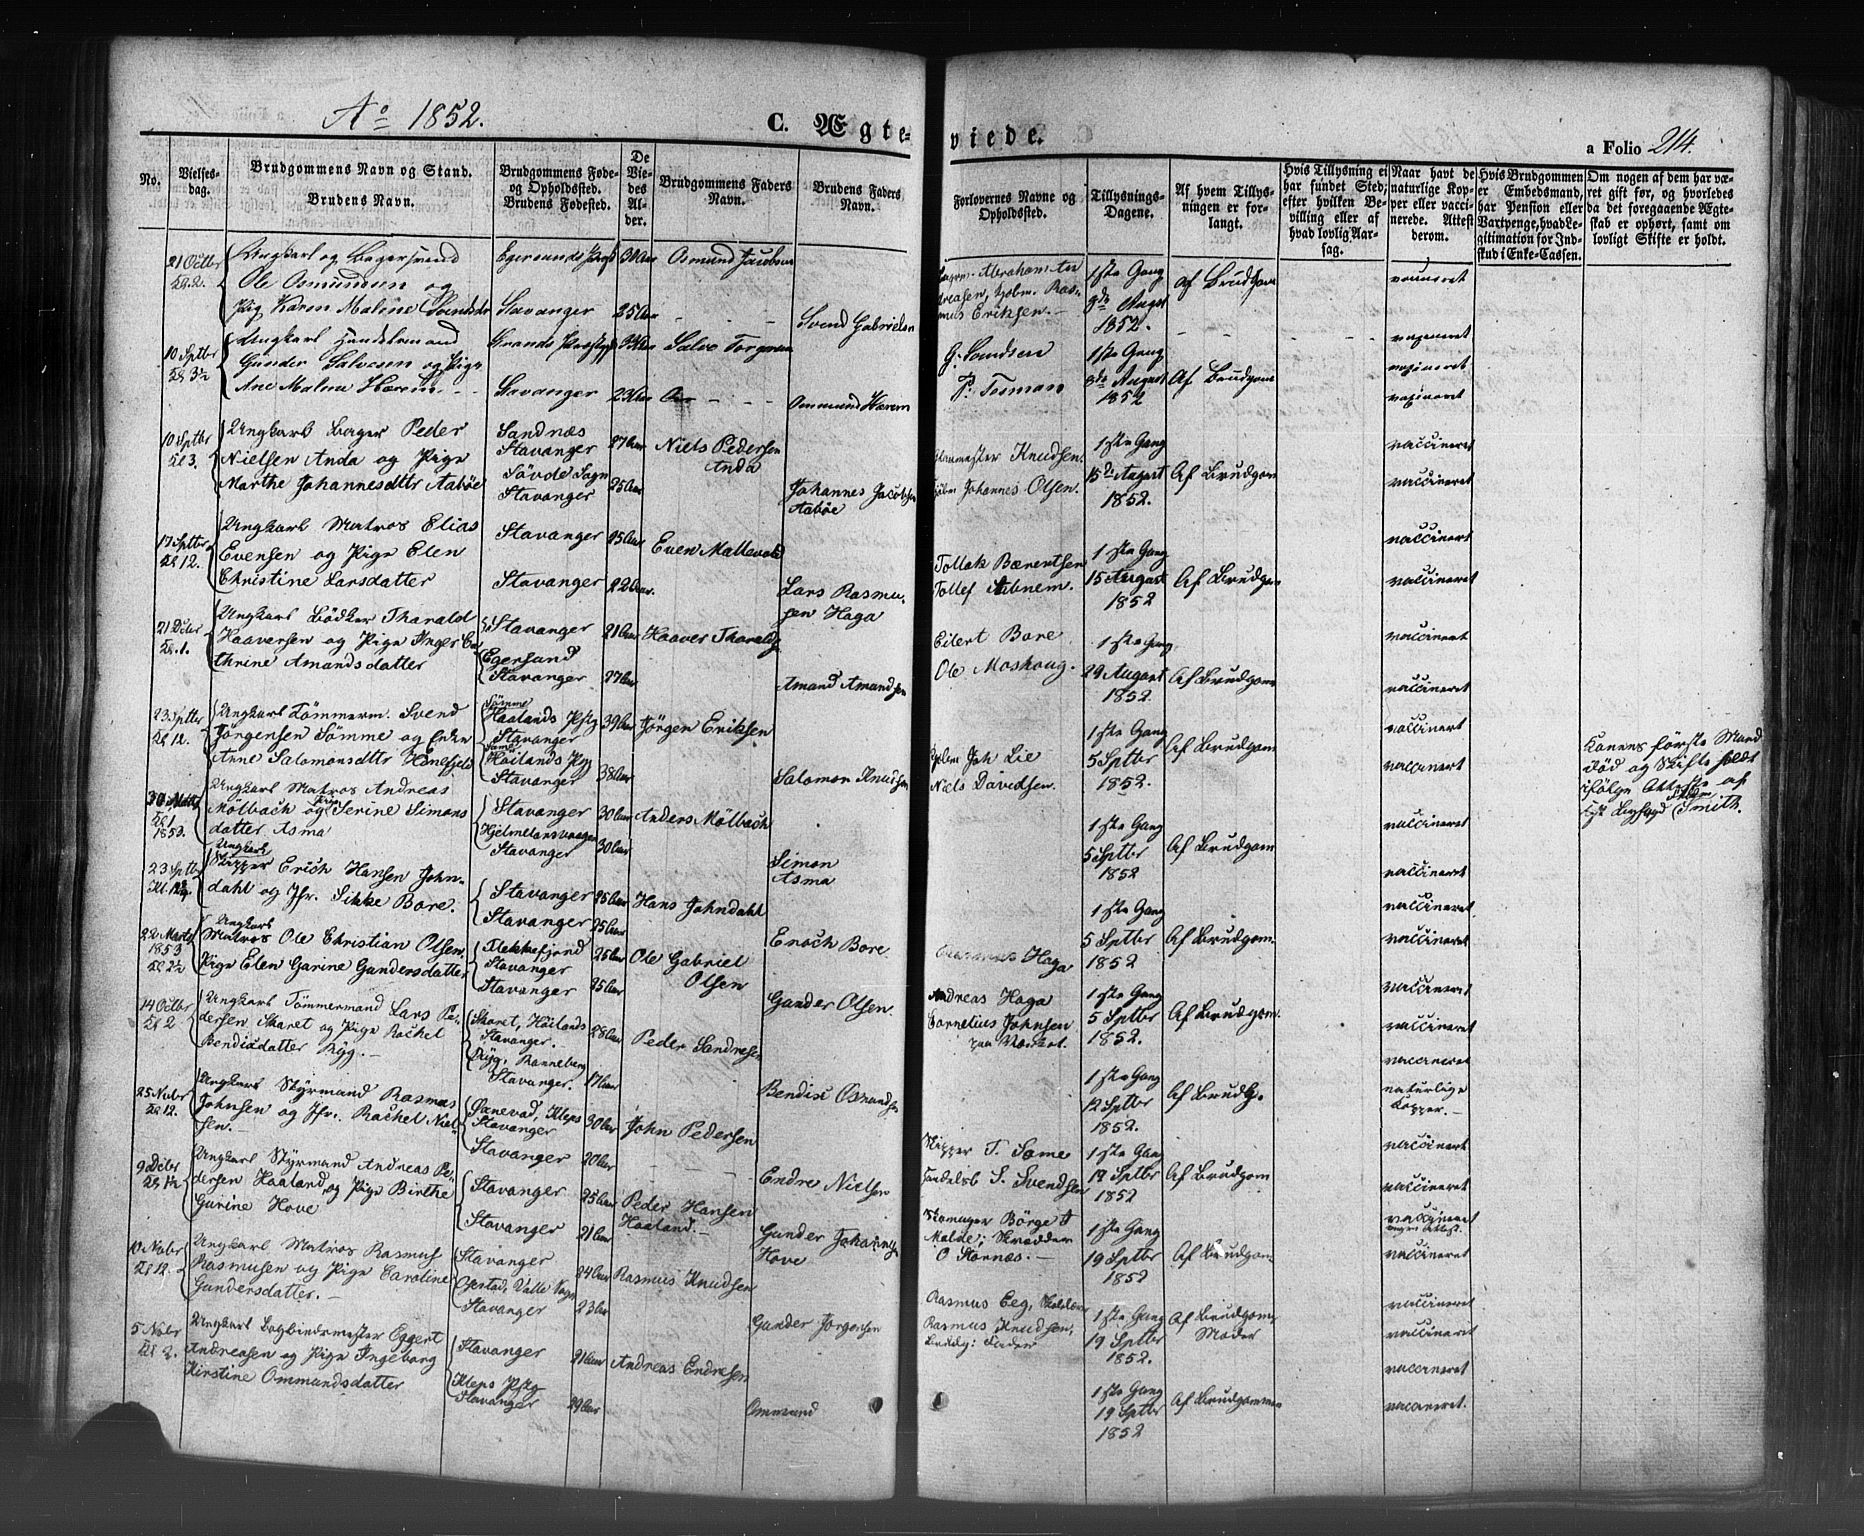 Aº 1852.
C. Ægte-
viede.
a Folio 214.
No.
Vielses-
dag.
Brudgommens Navn og Stand.
Brudens Navn.
Brudgommens Føde-
og Opholdssted.
Brudens Fødested.
De
Vie-
des
Al-
der.
Brudgommens Faders
Navn.
Brudens Faders
Navn.
Forlovernes Navne og
Opholdssted.
Tillysnings-
Dagene.
Af hvem Tillys-
ningen er for-
langt.
Hvis Tillysning ei
har fundet Sted;
efter hvilken Be-
villing eller af
hvad lovlig Aar-
sag.
Naar havt de
naturlige Kop-
per eller vacci-
nerede. Attest
derom.
Hvis Brudgommen
er Embedsmand,
har Pension eller
Vartpenge, hvad Le-
gitimation for Ind-
skud i Enke-Cassen.
Om nogen af dem har væ-
ret gift før, og hvorledes
da det foregaaende Ægte-
skab er ophørt, samt om
lovligt Skifte er holdt.
21 Octbr
Kl. 2.
Ungkarl og Bagersvend
Ole Osmundsen og
Pig Karen Maline Svendsdtr
Stavanger
31 Aar
25 Aar
Osmund Jacobsen
Svend Gabrielsen
Abraham An
dreasen, Ras-
mus Eriksen.
1ste Gang
8de August
1852.
af Brudgom
vaccineret
10 Sptbr
Kl 3½
Ungkarl Handelsmand
Gunder Salvesen og Pige
Ane Malene Hærem
Stavanger
33 Aar
23 Aar
Salve Torgersen
Ommund Hærem
G. Samdsen
P. Tesman
1ste Gang
8de August
1852
Af Brudgom
10 Sptbr
Kl 3.
Ungkarl Bager Peder
Nielsen Anda og Pige
Marthe Johannesdttr Aabøe
Sandnæs
Stavanger
Søvde Sogn
Stavanger
27 Aar
25 Aar
Niels Pedersen
Anda
Johannes Jacobsen
Aabøe
Knudsen.
Johannes Olsen.
1ste Gang
15de August
1852.
Af Brudgom
vaccineret
vaccineret
17 Sptbr
Kl 12.
Ungkarl Matros Elias
Evensen og Pige Elen
Christine Larsdatter
Stavanger
Stavanger
25 Aar
22 Aar.
Even Mallevold
Lars Rasmu-
sen Haga
Tollak Bærentsen
Tollef Aabnem.
1ste Gang
15 August
1852
Af Brudgom
vaccineret
vaccineret
21 Dcbr
Kl. 1.
Ungkarl Bødker Tharald
Haaversen og Pige Inger Ca-
thrine Amandsdatter
Stavanger
Egersund
Stavanger
21 Aar
27 Aar
Haaver Tharaldsen
Amand Amandsen
Eilert Bore
Ole Moshoug.
1ste Gang
29 August
1852.
Af Brudgom
vaccineret
vaccineret
23 Sptbr
Kl 12.
Ungkarl Tømmerm. Svend
Jørgensen Sømme og Enke
Anne Salomonsdttr Hønefjeld
Sømme
Haalands Pstg
Stavanger
Høilands Pg
Stavanger
39 Aar
38 Aar
Jørgen Eriksen
Salomon Knudsen
Joh Lie
Niels Davidsen.
1ste Gang
5 Sptbr
1852.
Af Brudgom
vaccinert
vaccinert
Konens første Mand
død og Skifte holdt
ifølge Attest af
Smith.
Kl 1
1852.
Ungkarl Matros Andreas
Mølbach og Pige Serine Simons
datter Asma
Stavanger
Hjelmelandsvaagen
Stavanger
30 Aar
30 Aar
Anders Mølbach
Simon
Asma
1ste Gang
5 Sptbr
1852
Af Brudgom
vaccineret
vaccineret
23 Sptbr
Ungkarl
Skipper Erich Hansen John-
dahl og Jfr. Sikke Bore.
Stavanger
Stavanger
25 Aar
25 Aar
Hans Johndahl
Enoch Bore
Rasmus Haga
1ste Gang
5 Sptbr
1852
Af Brudgom.
vaccineret
vaccineret
22 Marts
1853
Kl 2½
Ungkarl
Matros Ole Christian Olsen.
Pige Elen Garine Gundersdatter
Flekkefjord
Stavanger
Stavanger
25 Aar
25 Aar
Ole Gabriel
Olsen
Gunder Olsen.
Andreas Haga
Cornelius Johnsen
paa Værket.
1ste Gang
5 Sptbr
1852.
Af Brudgom.
vaccineret
vaccineret
14 Octbr
Kl 2
Ungkarl Tømmermand Lars Pe-
dersen Skaret og Pige Rachel
Bendixdatter Ryg.
Skaret, Høilands
Stavanger.
Ryg, Ranneberg
Stavanger.
28 Aar
17 Aar
Peder Sandresen
Bendix Osmundsen
1ste Gang
12 Sptbr
1852.
Af Brudg.
vaccineret
naturlige
Kopper.
25 Nvbr
Kl 12.
Ungkarl Styrmand Rasmus
Johnsen og Jfr. Rachel Niel-
sen.
Kleps
Stavanger
Stavanger
30 Aar
20 Aar
John Pedersen
Endre Nielsen
Skipper T. Same
Handelsb S. Svendsen
1ste Gang
19 Sptbr
1852
Af Brudgom
vaccinert
vaccineret
9 Dcbr
Kl 1½
Ungkarl Styrmand Andreas Pe-
dersen Haaland og Pige Birthe
Gurine Hove
Stavanger
Stavanger
25 Aar
21 Aar
Peder Hansen
Haaland.
Gunder Johannesen
Hove
Skomager Børge T
Malde; Skrædder
O Stornæs.
1ste Gang
19 Sptbr
1852
Af Brudgom
vaccineret
ingen Attest.
vaccineret
10 Nvbr
Kl 12.
Ungkarl Matros Rasmus
Rasmusen og Pige Caroline
Gundersdatter.
Stavanger
Ogestad, Valle Sogn
Stavanger
24 Aar
23 Aar
Rasmus Knudsen
Gunder Jørgensen
Rasmus Eeg,
Rasmus Knudsen,
Brudg: Fader
1ste Gang
19 Sptbr
1852.
Af Brudgoms
Moder
vaccineret
vaccineret
5 Nvbr
Kl 2.
Ungkarl Bogbindermester Eggert
Andreasen og Pige Ingeborg
Kirstine Ommundsdatter
Stavanger
Kleps Pstg
Stavanger
21 Aar
29 Aar
Andreas Endresen
Ommund
1ste Gang
19 Sptbr
1852
Af Brudgommen
vaccineret
vaccineret.